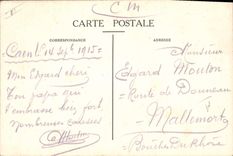 C M
CARTE POSTALE
CORRESPONDANCE
ADRESSE
le 14 Sept 1915=
Mon Edgard chéri
Ton papa qui
t'embrasse bien fort
nombreuses caresses
Monsieur
Edgard Mouton
Route de Donneau
Mallemort
Bouches du Rhône